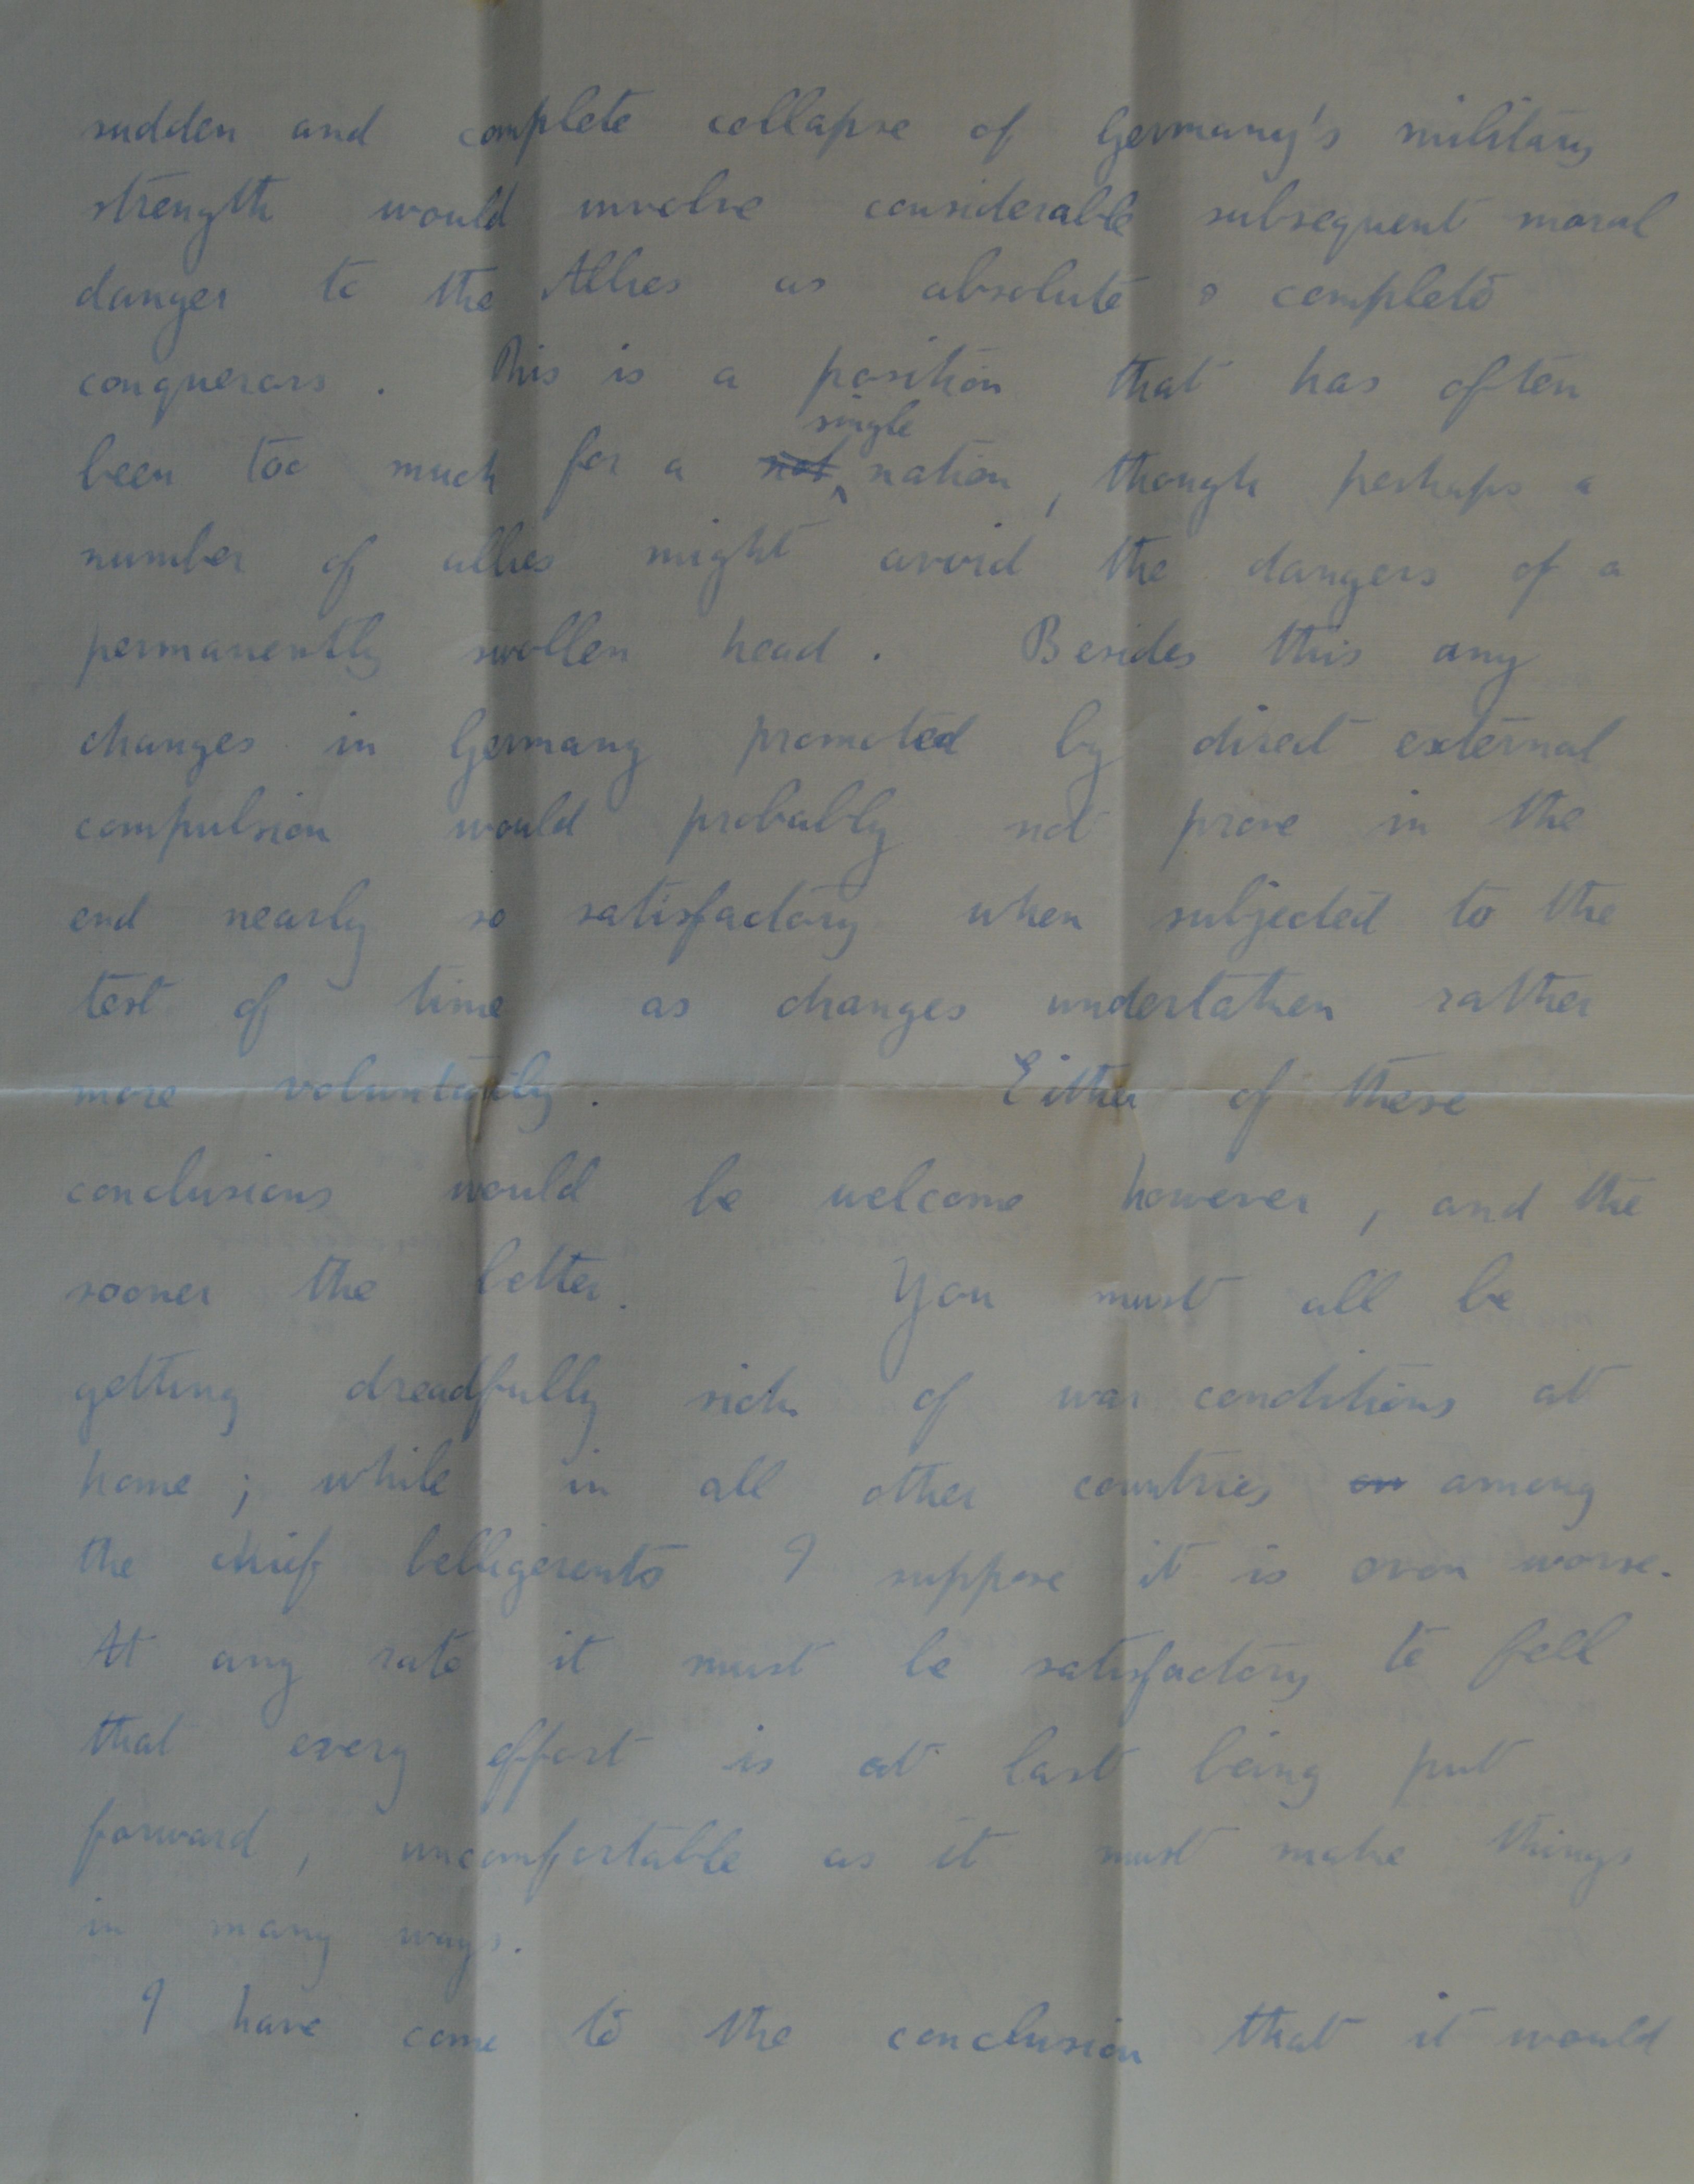 sudden and complete collapse of Germany's military
strength would involve considerable subsequent moral
danger to the Allies as absolute & complete
conquerors. This is a position that has often
single
been too much for a not nation, though perhaps a
number of allies might avoid the dangers of a
permanently swollen head. Besides this any
changes in Germany promoted by direct external
compulsion would probably not prove in the
end nearly so satisfactory when subjected to the
test of time as changes undertaken rather
more voluntarily. Either of these
conclusions would be welcome however, and the
sooner the better. You must all be
getting dreadfully sick of war conditions at
home; while in all other countries on among
the chief belligerents I suppose it is even worse.
At any rate it must be satisfactory to fell
that every effort is at last being put
forward, uncomfortable as it must make things
in many ways.
I have come to the conclusion that it would